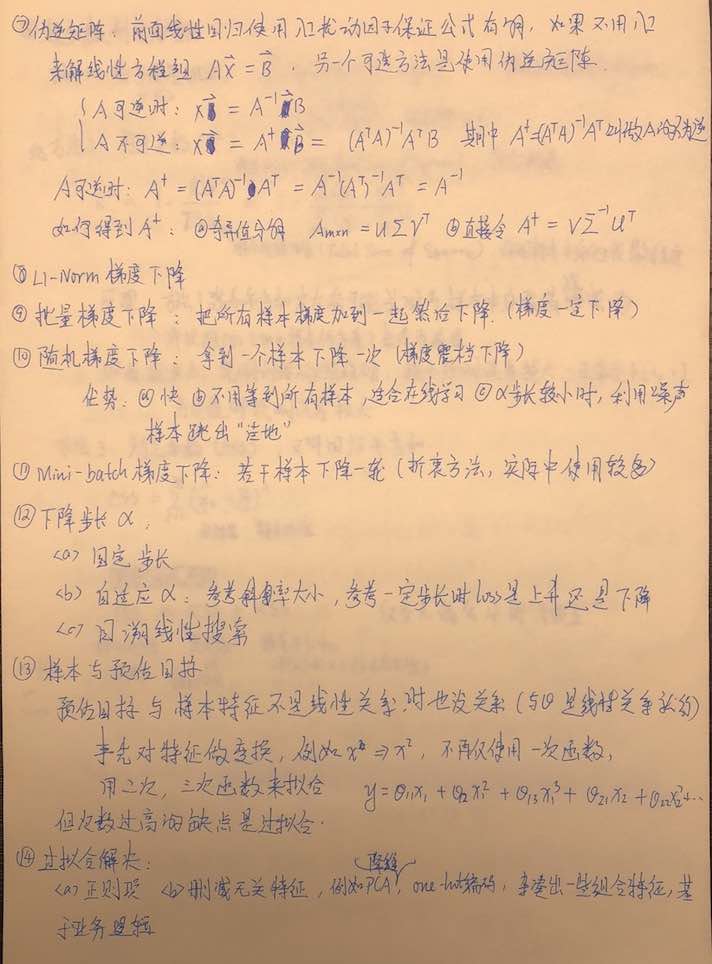 ⑦ 伪逆矩阵：前面线性回归使用λI扰动因子保证公式有解，如果不用λI
来解线性方程组 AX⃗ = B⃗ . 另一个可选方法是使用伪逆矩阵.
A可逆时: X⃗ = A⁻¹B⃗
A不可逆: X⃗ = A⁺B⃗ = (AᵀA)⁻¹AᵀB 其中 A⁺=(AᵀA)⁻¹Aᵀ 叫做A的伪逆
A可逆时: A⁺ = (AᵀA)⁻¹Aᵀ = A⁻¹(Aᵀ)⁻¹Aᵀ = A⁻¹
如何得到A⁺: ⓐ奇异值分解 Aₘₓₙ = UΣVᵀ ⓑ直接令 A⁺ = VΣ⁻¹Uᵀ
⑧ L1-Norm 梯度下降
⑨ 批量梯度下降：把所有样本梯度加到一起然后下降. (梯度一定下降)
⑩ 随机梯度下降：拿到一个样本下降一次 (梯度震荡下降)
优势: ⓐ 快 ⓑ 不用等到所有样本, 适合在线学习 ⓒ α步长较小时, 利用噪声
样本跳出"洼地"
⑪ Mini-batch 梯度下降: 若干样本下降一轮 (折衷方法, 实际中使用较多)
⑫ 下降步长 α:
<a> 固定步长
<b> 自适应α: 参考斜率大小, 参考一定步长时loss是上升还是下降
<c> 回溯线性搜索
⑬ 样本与预估目标
预估目标与样本特征不是线性关系时也没关系 (与θ是线性关系就行)
事先对特征做变换, 例如 x ⇒ x², 不再仅使用一次函数,
用二次, 三次函数来拟合 y = θ₁₁x₁ + θ₁₂x₁² + θ₁₃x₁³ + θ₂₁x₂ + θ₂₂x₂²+...
但次数过高的缺点是过拟合.
⑭ 过拟合解决:
降维
<a> 正则项 <b> 删减无关特征, 例如PCA, one-hot编码, 事凑出一些组合特征, 基
于业务逻辑